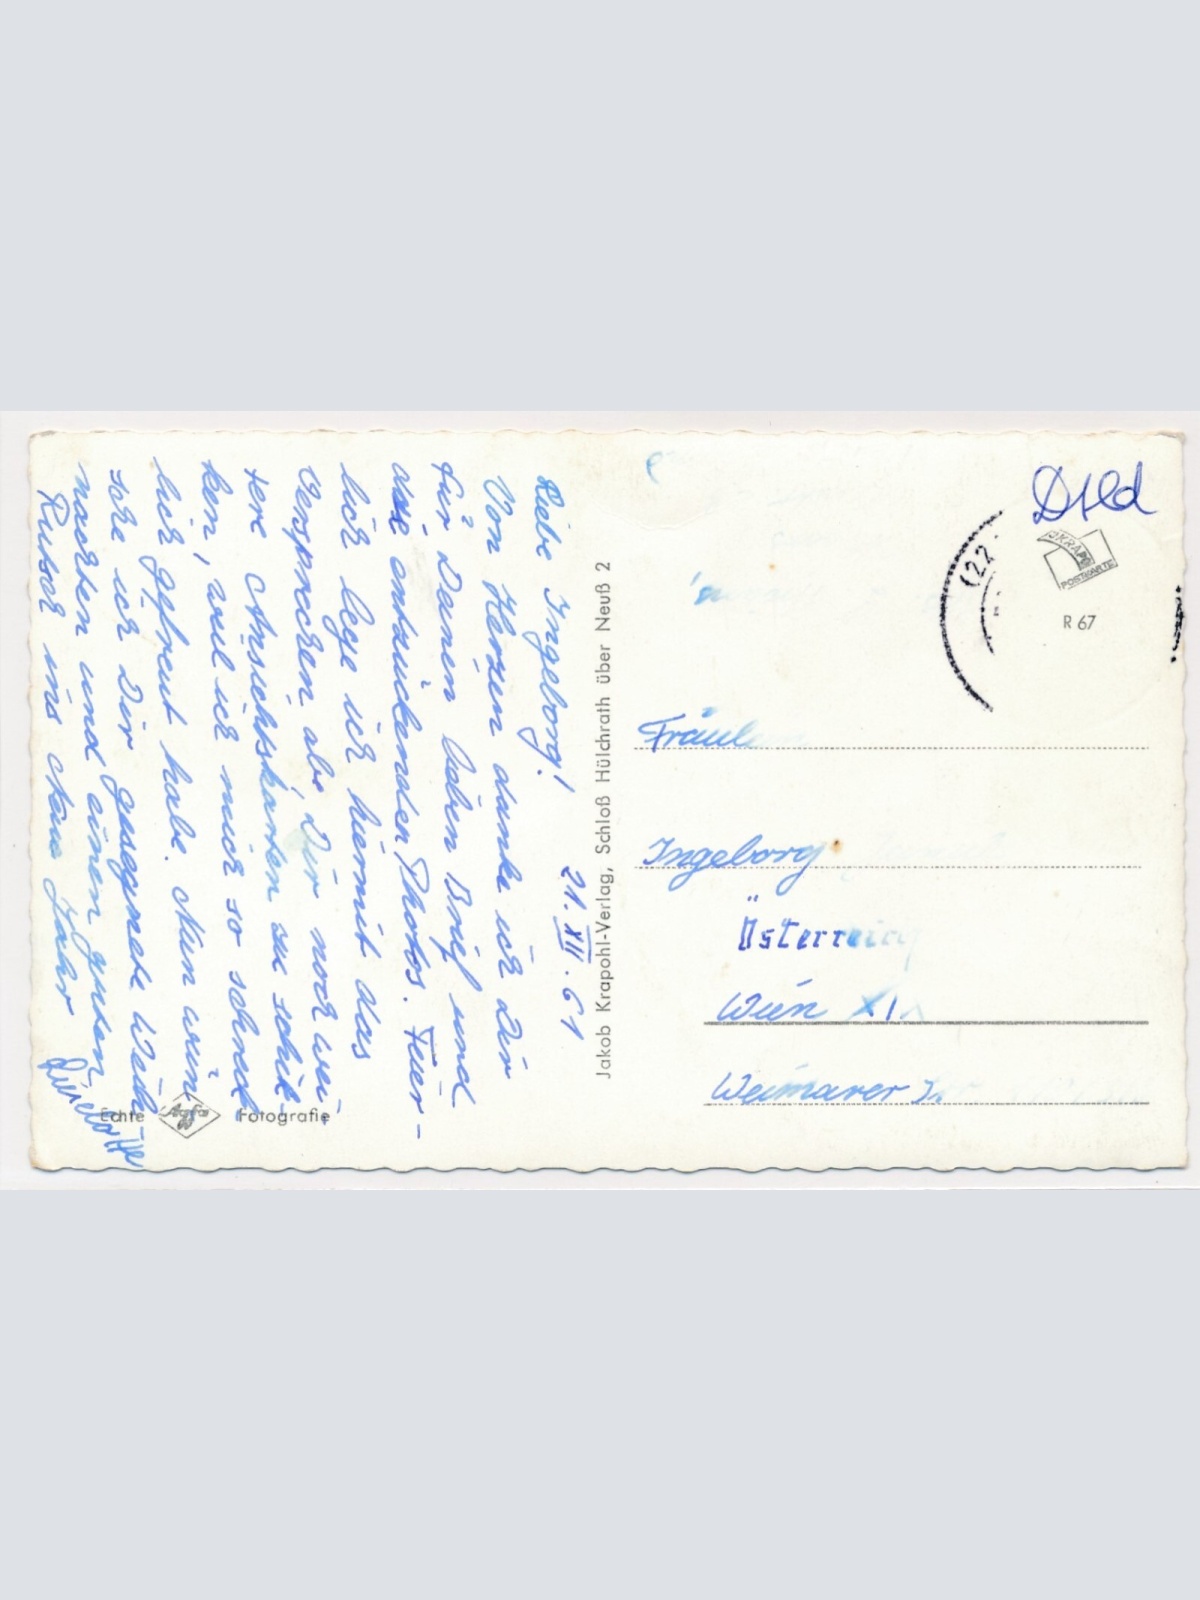 21. XII. 61
Liebe Ingeborg!
Von Herzen danke ich Dir
für Deinen lieben Brief und
die entzückenden Photos. Feier-
lich lege ich hiermit das
Versprechen ab Dir noch wei-
tere Ansichtskarten zu schik-
ken, weil ich mich so schreck
lich gefreut habe. Nun wün
sche ich Dir gesegnete Weih-
nachten und einen guten
Rutsch ins Neue Jahr
Echte Agfa Fotografie
Jakob Krapohl-Verlag, Schloß Hülchrath über Neuß 2
Dtld
(22
KRAPO
POSTKARTE
R 67
Fräulein
Ingeborg
Österreich
Wien XIX
Weimarer